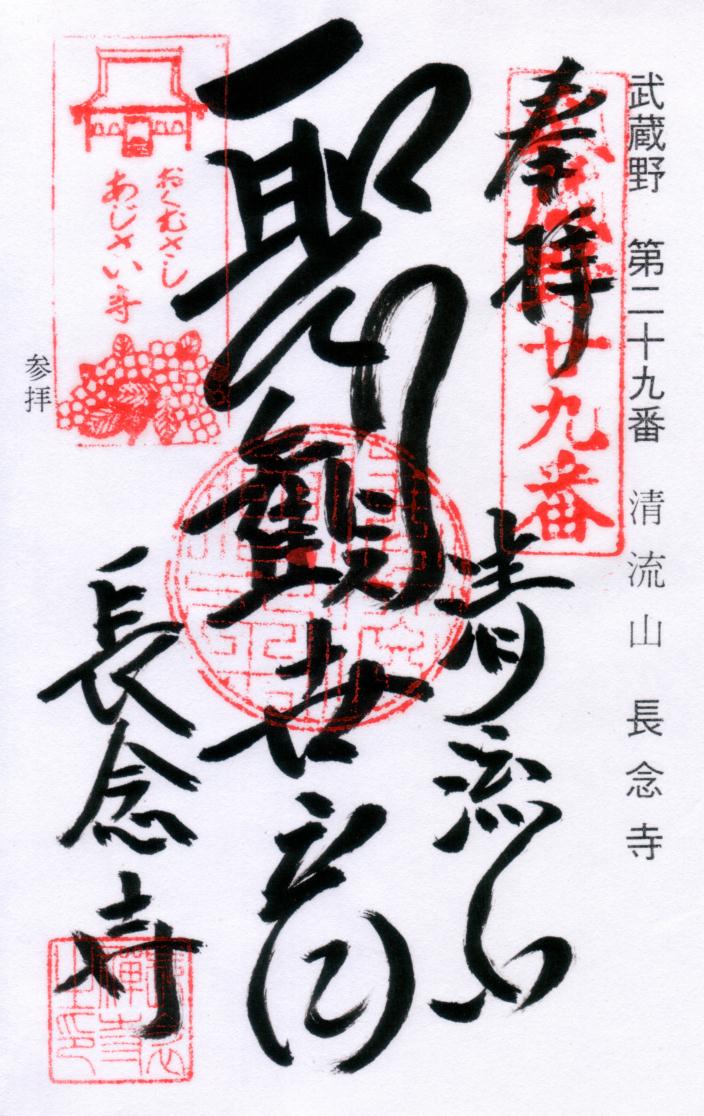 武蔵野 第二十九番 清流山 長念寺
奉拝
武蔵野廿九番
清流山
聖観世音
おくむさし
あじさい寺
参拝
長念寺